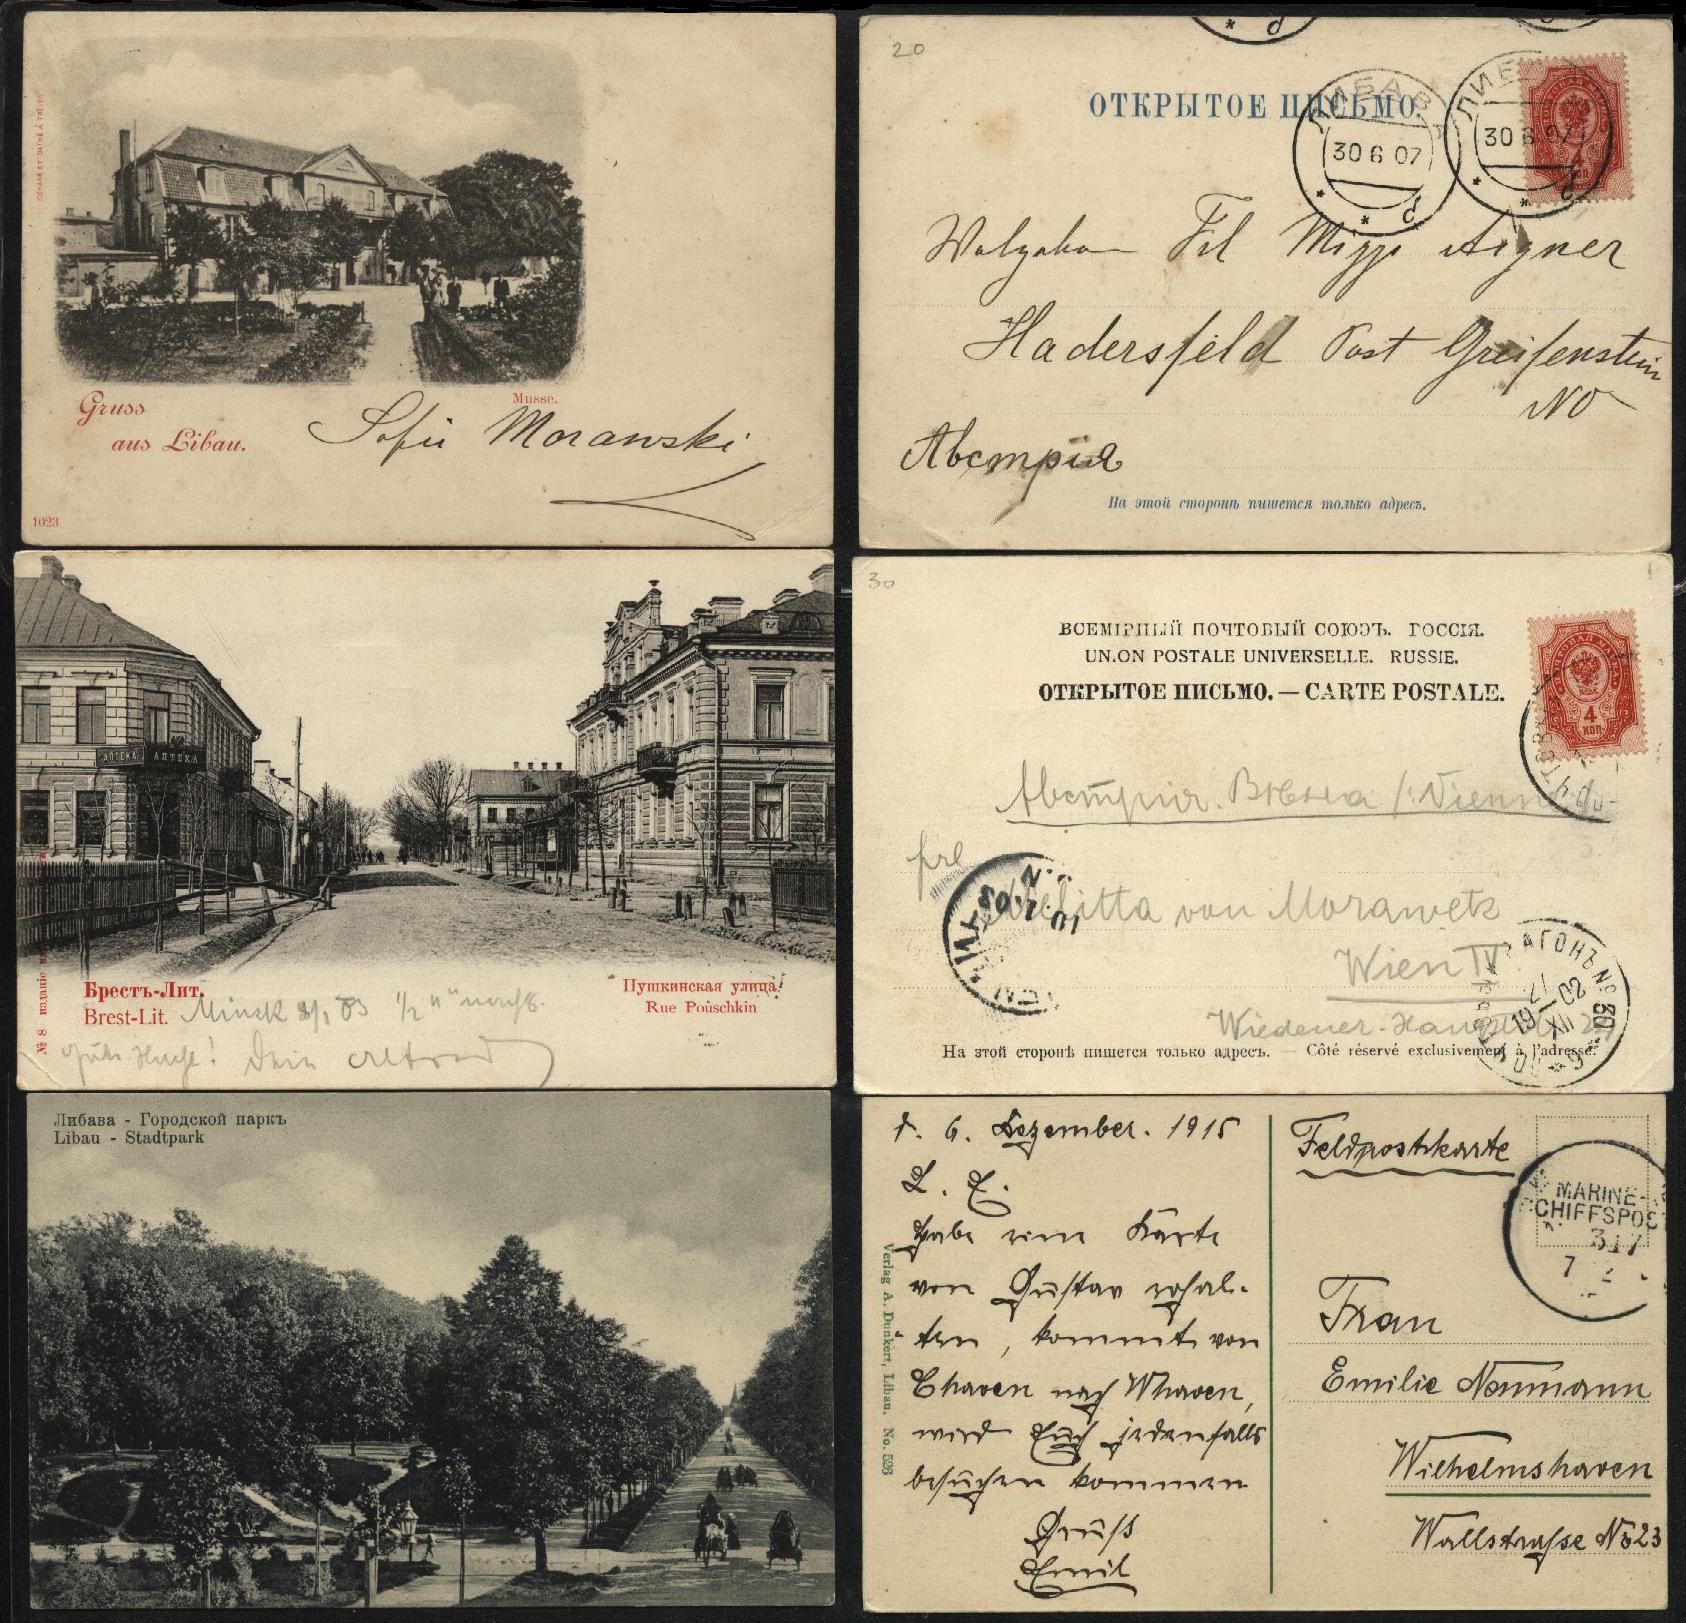 SCHAAR ET DATHE À TRÈVES
Gruss
aus Libau.
Musse.
Sofie Morawski
1023
20
ОТКРЫТОЕ ПИСЬМО.
ЛИБАВА
30 6 07
30 6 07
Frl Mizzi Aigner
Hadersfeld Post Greifenstein
NO
Австрія
На этой сторонѣ пишется только адресъ.
АПТЕКА АПТЕКА
Брестъ-Лит.
Brest-Lit.
Пушкинская улица
Rue Pouschkin
№ 8 изданіе
Minsk
1/2 11
30
ВСЕМІРНЫЙ ПОЧТОВЫЙ СОЮЗЪ. РОССІЯ.
UNION POSTALE UNIVERSELLE. RUSSIE.
ОТКРЫТОЕ ПИСЬМО. — CARTE POSTALE.
4
КОП.
Австрія. Вѣна / Wien
frl
Melitta von Morawetz
Wien IV
Wiedener-Hauptstr
ВАГОНЪ № 30
19 XII 02
На этой сторонѣ пишется только адресъ. — Côté réservé exclusivement à l'adresse.
Либава - Городской паркъ
Libau - Stadtpark
d. 6. Dezember. 1915
L. E.
habe eine Karte
von Gustav erhal-
ten, kommt von
Chaven nach Whaven,
wird Euch jedenfalls
besuchen kommen
Gruß
Emil
Verlag A. Dunkert, Libau. No.
Feldpostkarte
MARINE-
SCHIFFSPOST
317
Frau
Emilie Neumann
Wilhelmshaven
Wallstraße No 23